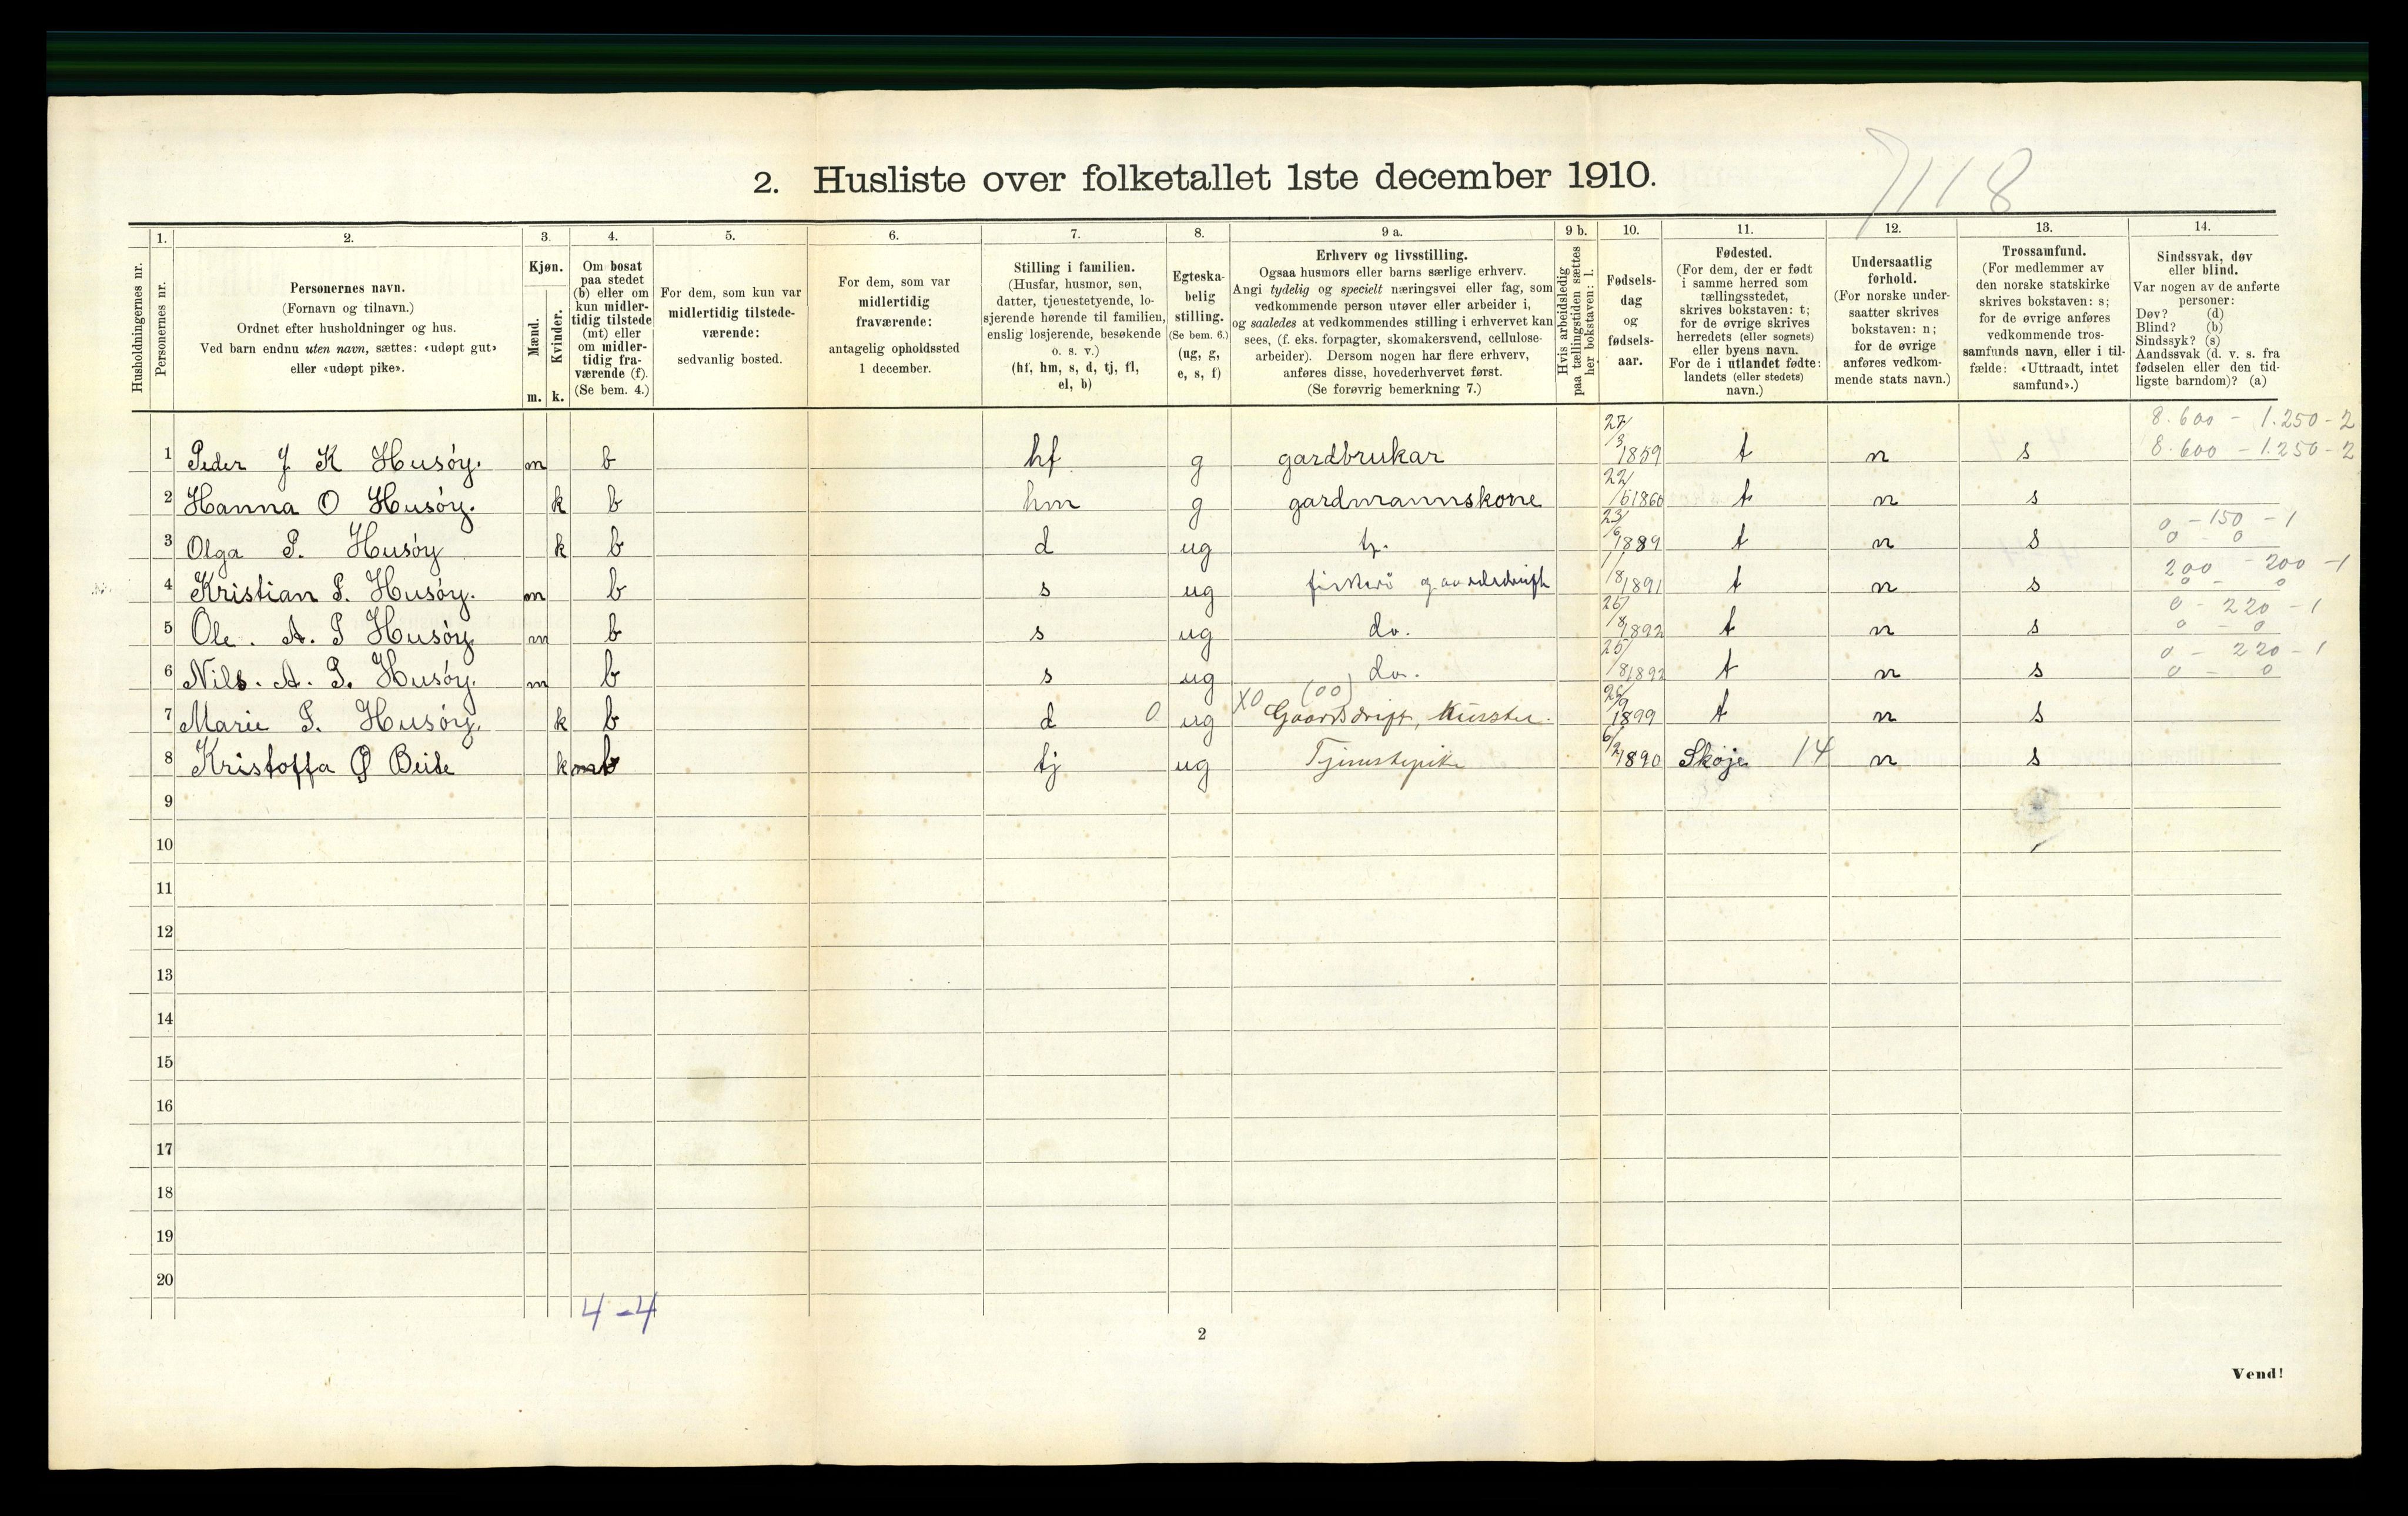 7118
2. Husliste over folketallet 1ste december 1910.
1. 2. 3. 4. 5. 6. 7. 8. 9 a. 9 b. 10. 11. 12. 13. 14.
Husholdningernes nr.
Personernes nr.
Personernes navn.
(Fornavn og tilnavn.)
Ordnet efter husholdninger og hus.
Ved barn endnu uten navn, sættes: «udøpt gut»
eller «udøpt pike».
Kjøn.
Mænd.
Kvinder.
m. k.
Om bosat
paa stedet
(b) eller om
kun midler-
tidig tilstede
(mt) eller
om midler-
tidig fra-
værende (f).
(Se bem. 4.)
For dem, som kun var
midlertidig tilstede-
værende:
sedvanlig bosted.
For dem, som var
midlertidig
fraværende:
antagelig opholdssted
1 december.
Stilling i familien.
(Husfar, husmor, søn,
datter, tjenestetyende, lo-
sjerende hørende til familien,
enslig losjerende, besøkende
o. s. v.)
(hf, hm, s, d, tj, fl,
el, b)
Egteska-
belig
stilling.
(Se bem. 6.)
(ug, g,
e, s, f)
Erhverv og livsstilling.
Ogsaa husmors eller barns særlige erhverv.
Angi tydelig og specielt næringsvei eller fag, som
vedkommende person utøver eller arbeider i,
og saaledes at vedkommendes stilling i erhvervet kan
sees, (f. eks. forpagter, skomakersvend, cellulose-
arbeider). Dersom nogen har flere erhverv,
anføres disse, hovederhvervet først.
(Se forøvrig bemerkning 7.)
Hvis arbeidsledig
paa tællingstiden sættes
her bokstaven: l.
Fødsels-
dag
og
fødsels-
aar.
Fødested.
(For dem, der er født
i samme herred som
tællingsstedet,
skrives bokstaven: t;
for de øvrige skrives
herredets (eller sognets)
eller byens navn.
For de i utlandet fødte:
landets (eller stedets)
navn.)
Undersaatlig
forhold.
(For norske under-
saatter skrives
bokstaven: n;
for de øvrige
anføres vedkom-
mende stats navn.)
Trossamfund.
(For medlemmer av
den norske statskirke
skrives bokstaven: s;
for de øvrige anføres
vedkommende tros-
samfunds navn, eller i til-
fælde: «Uttraadt, intet
samfund».)
Sindssvak, døv
eller blind.
Var nogen av de anførte
personer:
Døv? (d)
Blind? (b)
Sindssyk? (s)
Aandssvak (d. v. s. fra
fødselen eller den tid-
ligste barndom)? (a)
8.600 - 1.250 - 2
1 Peder J K Husøy. m b hf g gardbrukar 27/3 1859 t n s 8.600 - 1.250 - 2
2 Hanna O Husøy. k b hm g gardmannskone 22/6 1860 t n s
0 - 150 - 1
3 Olga P. Husøy k b d ug tj. 23/6 1889 t n s 0 - 0
200 - 200 - 1
4 Kristian P. Husøy. m b s ug gaardsdrift 1/8 1891 t n s 0 - 0
0 - 220 - 1
5 Ole. A. P Husøy m b s ug do. 25/8 1892 t n s 0 - 0
0 - 220 - 1
6 Nils. A. P. Husøy. m b s ug do. 25/8 1892 t n s 0 - 0
X0 (00)
7 Marie P. Husøy. k b d 0 ug Gaardsdrift, 1899 t n s
8 Kristoffa Ø Beite k b tj ug Tjenestepike 6/2 1890 Skoje 14 n s
9
10
11
12
13
14
15
16
17
18
19
20
4 - 4
2
Vend!